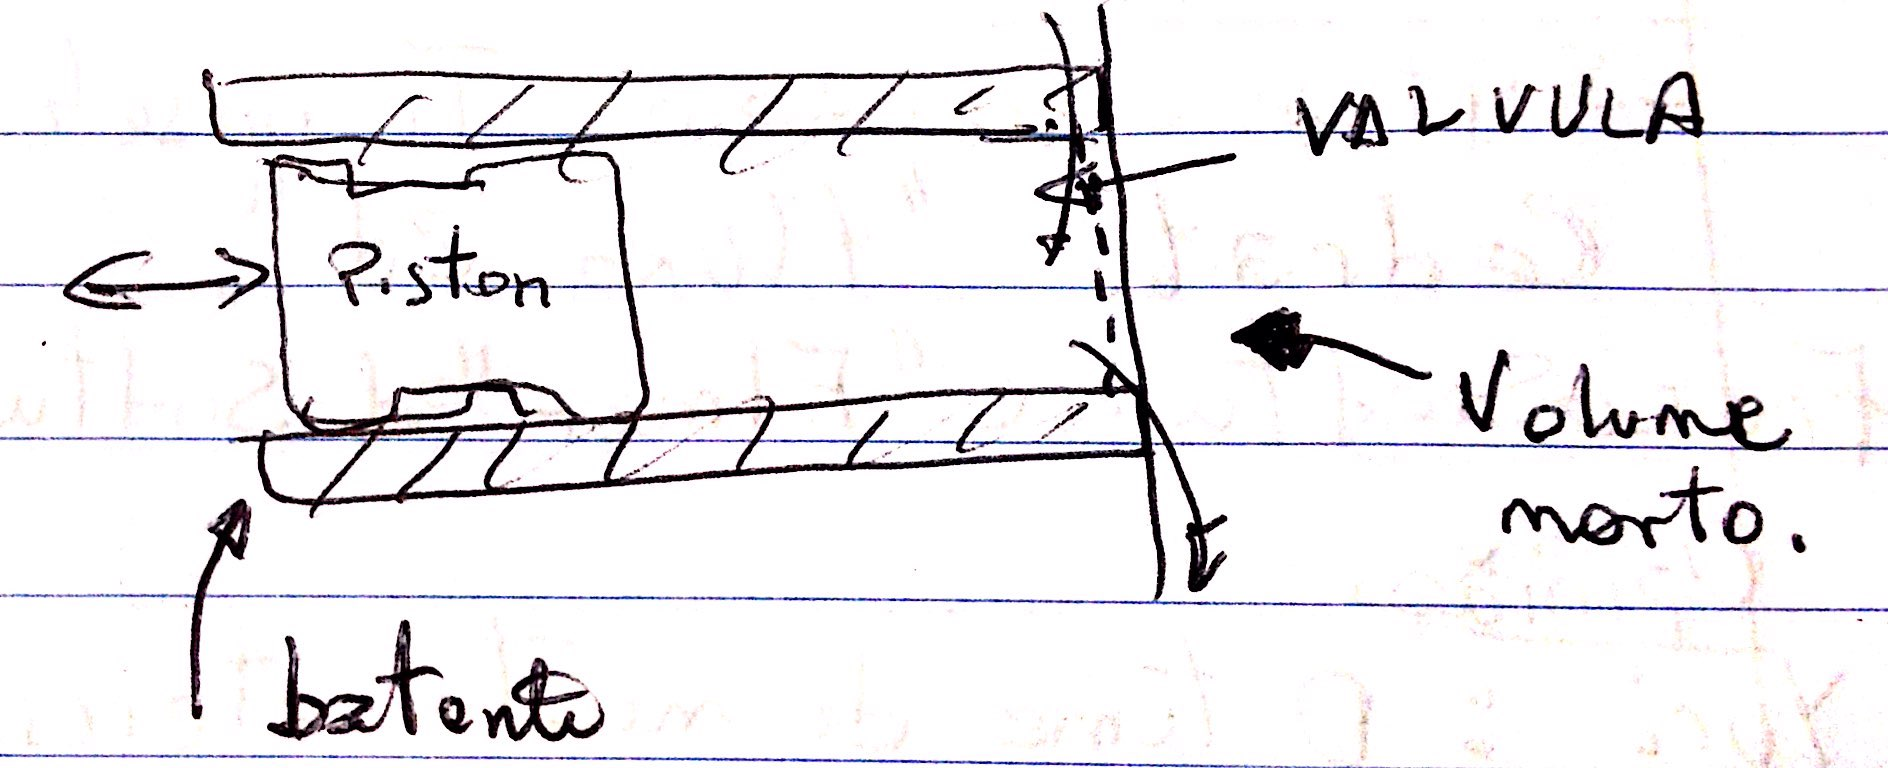 VALVULA
Piston
Volume
morto.
batente